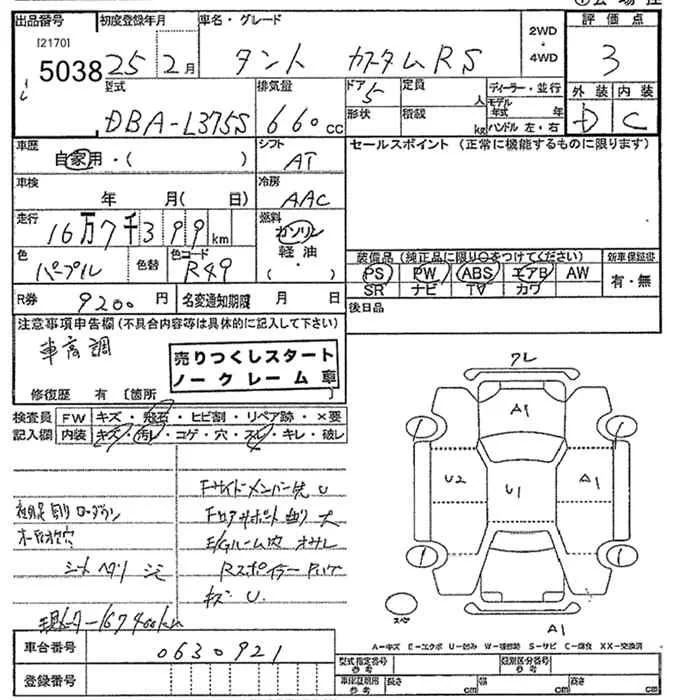 出品番号 初度登録年月 車名・グレード 評価点
[2170]
5038 25 2月 タント カスタムRS 2WD・4WD 3
型式 排気量 ドア 定員 ディーラー・並行 外装 内装
DBA-L375S 660cc 5 人 モデル年式 年
形状 積載 kg ハンドル 左・右 D C
車歴 シフト セールスポイント (正常に機能するものに限ります)
自家用・( ) AT
車検 年 月( 日) 冷房 AAC
走行 16万7千399km 燃料 ガソリン 軽油 ( ・ )
装備品 (純正品に限り○をつけてください) 新車保証書
色 パープル 色替 色コード R49
PS PW ABS エアB AW 有・無
SR ナビ TV カワ
R券 9200円 名変通知期限 月 日
後日品
注意事項申告欄(不具合内容等は具体的に記入して下さい)
車高調
売りつくしスタート
ノークレーム車
修復歴 有 [箇所
検査員 FW キズ・飛石・ヒビ割・リペア跡・×要
記入欄 内装 キズ・汚レ・コゲ・穴・スレ・キレ・破レ
フレ
A1
U2 U1 A1
A1
スペア
Fサイドメンバー先 U
Fロアサポート曲り 大
E/Gルーム内 オサレ
Rスポイラー
キズ U
シートヘタリ
A-キズ E-エクボ U-凹み W-補修跡 S-サビ C-腐食 XX-交換済
車台番号 0630921
型式指定番号 参考 類別区分番号 参考
登録番号
車検証明用 参考 長さ cm 幅 cm 高さ cm